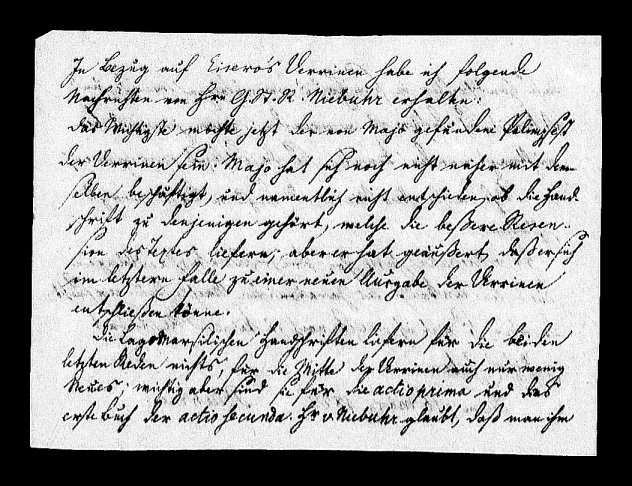 In Bezug auf Cicero's Verrinen habe ich folgende
Nachrichten von Hrn G. St. R. Niebuhr erhalten:
das Wichtigste möchte jetzt der von Majo gefundene Palimpsest
der Verrinen sein. Majo hat sich noch nicht näher mit dem
selben beschäftigt, und namentlich nicht entschieden, ob die Hand-
schrift zu denjenigen gehört, welche die beßere Recen-
sion des Textes liefern; aber er hat geäußert, daß er sich
im letztern Falle zu einer neuen Ausgabe der Verrinen
entschließen könne.
Die Lagomarsinischen Handschriften liefern für die beiden
letzten Reden nichts, für die Mitte der Verrinen auch nur wenig
Neues; wichtig aber sind sie für die actio prima und das
erste Buch der actio secunda. Hr v. Niebuhr glaubt, daß man ihm